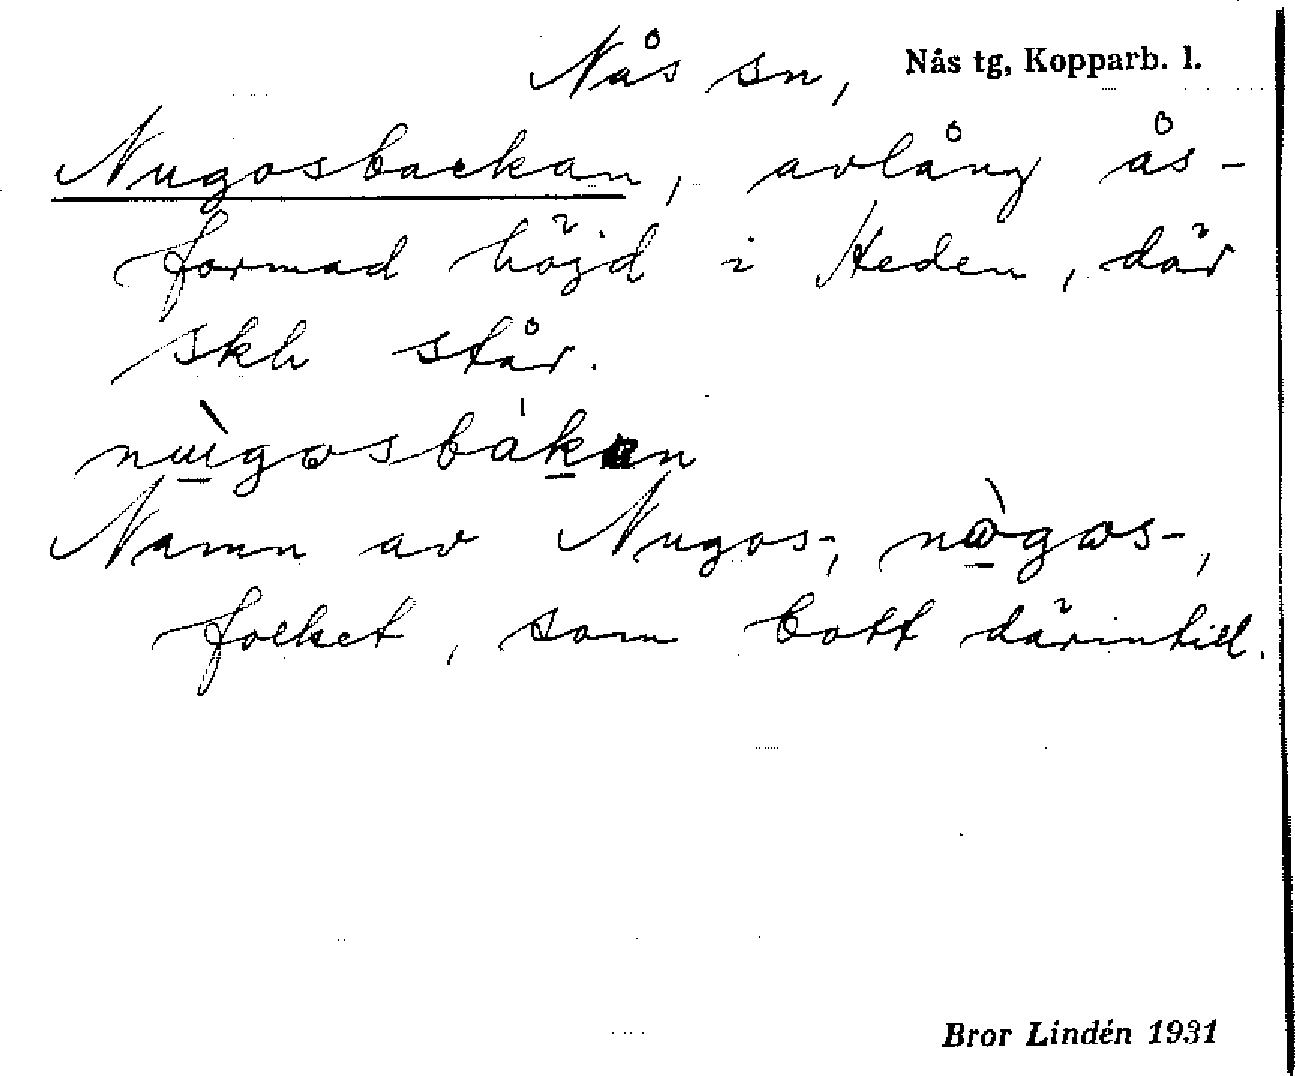 Nås sn, Nås tg, Kopparb. l.
Nugosbackan, avlång ås-
formad höjd i Heden, där
skh står.
nùgosbákan
Namn av Nugos-, nògos-,
folket, som bott därintill.
Bror Lindén 1931